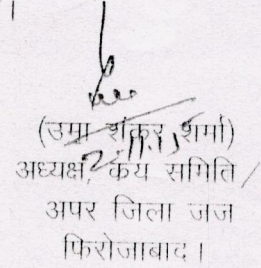 (उमा शंकर शर्मा)
अध्यक्ष, क्रय समिति/
अपर जिला जज
फिरोजाबाद।